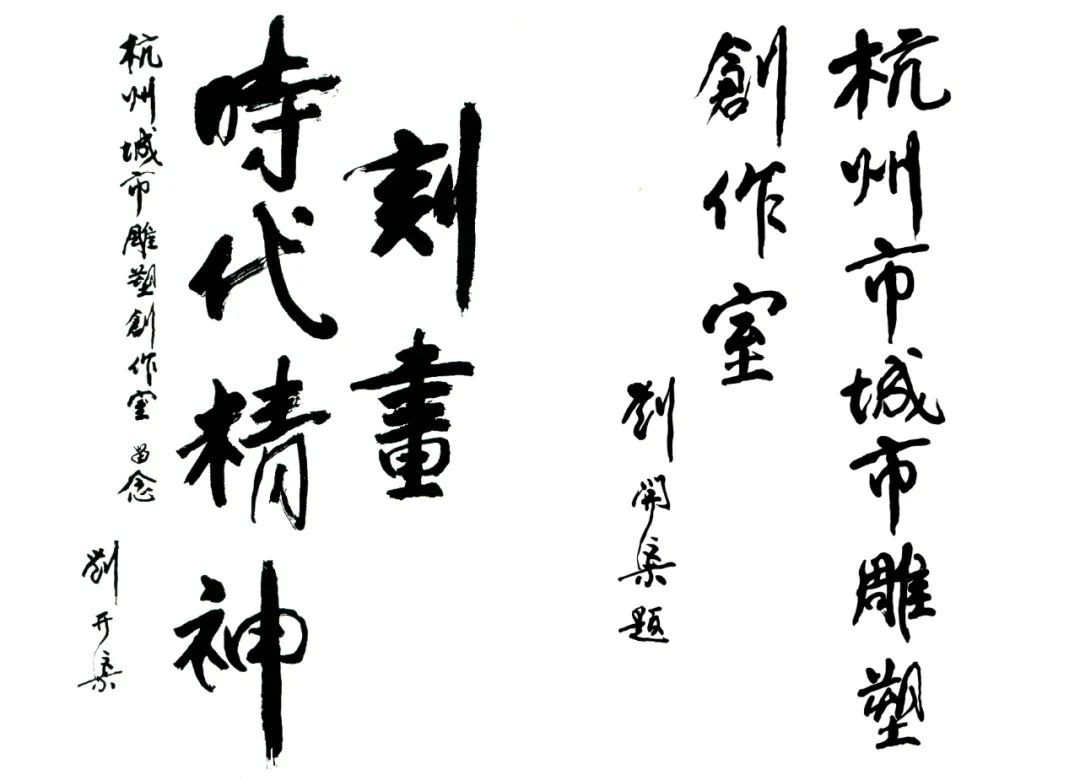 杭州市城市雕塑
創作室
劉開渠題
刻畫
時代精神
杭州城市雕塑創作室留念
劉开渠